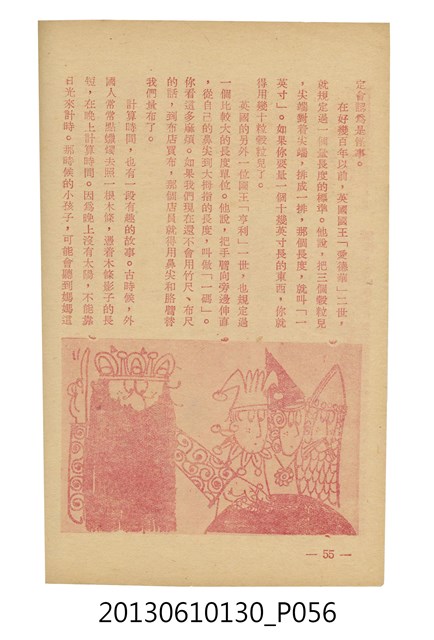 定會認爲是怪事。
在好幾百年以前,英國國王「愛德華」二世,
就規定過一個量長度的標準。他說,把三個穀粒兒
,尖端對着尖端,排成一排,那個長度,就叫「一
英寸」。如果你要量一個十幾英寸長的東西,你就
得用幾十粒穀粒兒了。
英國的另外一位國王「亨利」一世,也規定過
一個比較大的長度單位。他說,把手臂向旁邊伸直
,從自己的鼻尖到大拇指的長度,叫做「一碼」。
你看這多麻煩。如果我們現在還不會用竹尺、布尺
的話,到布店買布,那個店員就得用鼻尖和胳臂替
我們量布了。
計算時間,也有一段有趣的故事。古時候,外
國人常常點蠟燭去照一根木條,憑着木條影子的長
短,在晚上計算時間。因爲晚上沒有太陽,不能靠
日光來計時。那時候的小孩子,可能會聽到媽媽這
— 55 —
20130610130_P056